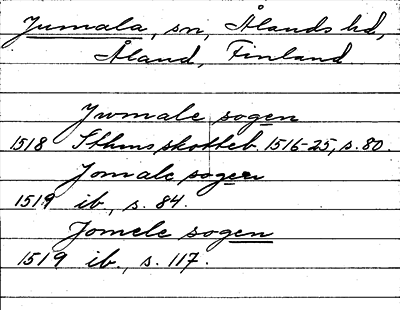 Jumala, sn, Ålands hd,
Åland, Finland
Jwmale sogen
1518 Sthms skotteb. 1516-25, s. 80.
Jomale sogen
1519 ib., s. 84.
Jomele sogen
1519 ib., s. 117.